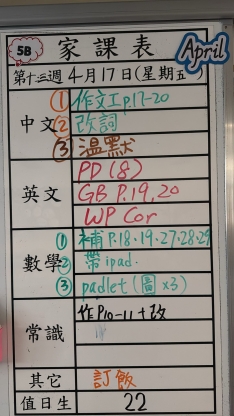 5B 家課表 April
第十三週 4月17日(星期五
中文 ① 作文工 p.17-20
② 改詞
③ 溫默
英文 PD (8)
GB P.19, 20
WP Cor
數學 ① 補 P.18、19、27、28、29
② 帶 ipad.
③ padlet (圖 x3)
常識 作P10-11+改
其它 訂飯
值日生 22